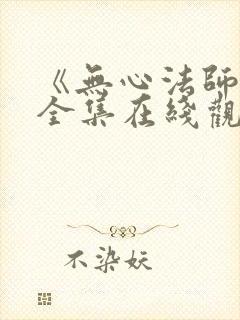 《無心法師
全集在綫觀
不染妖